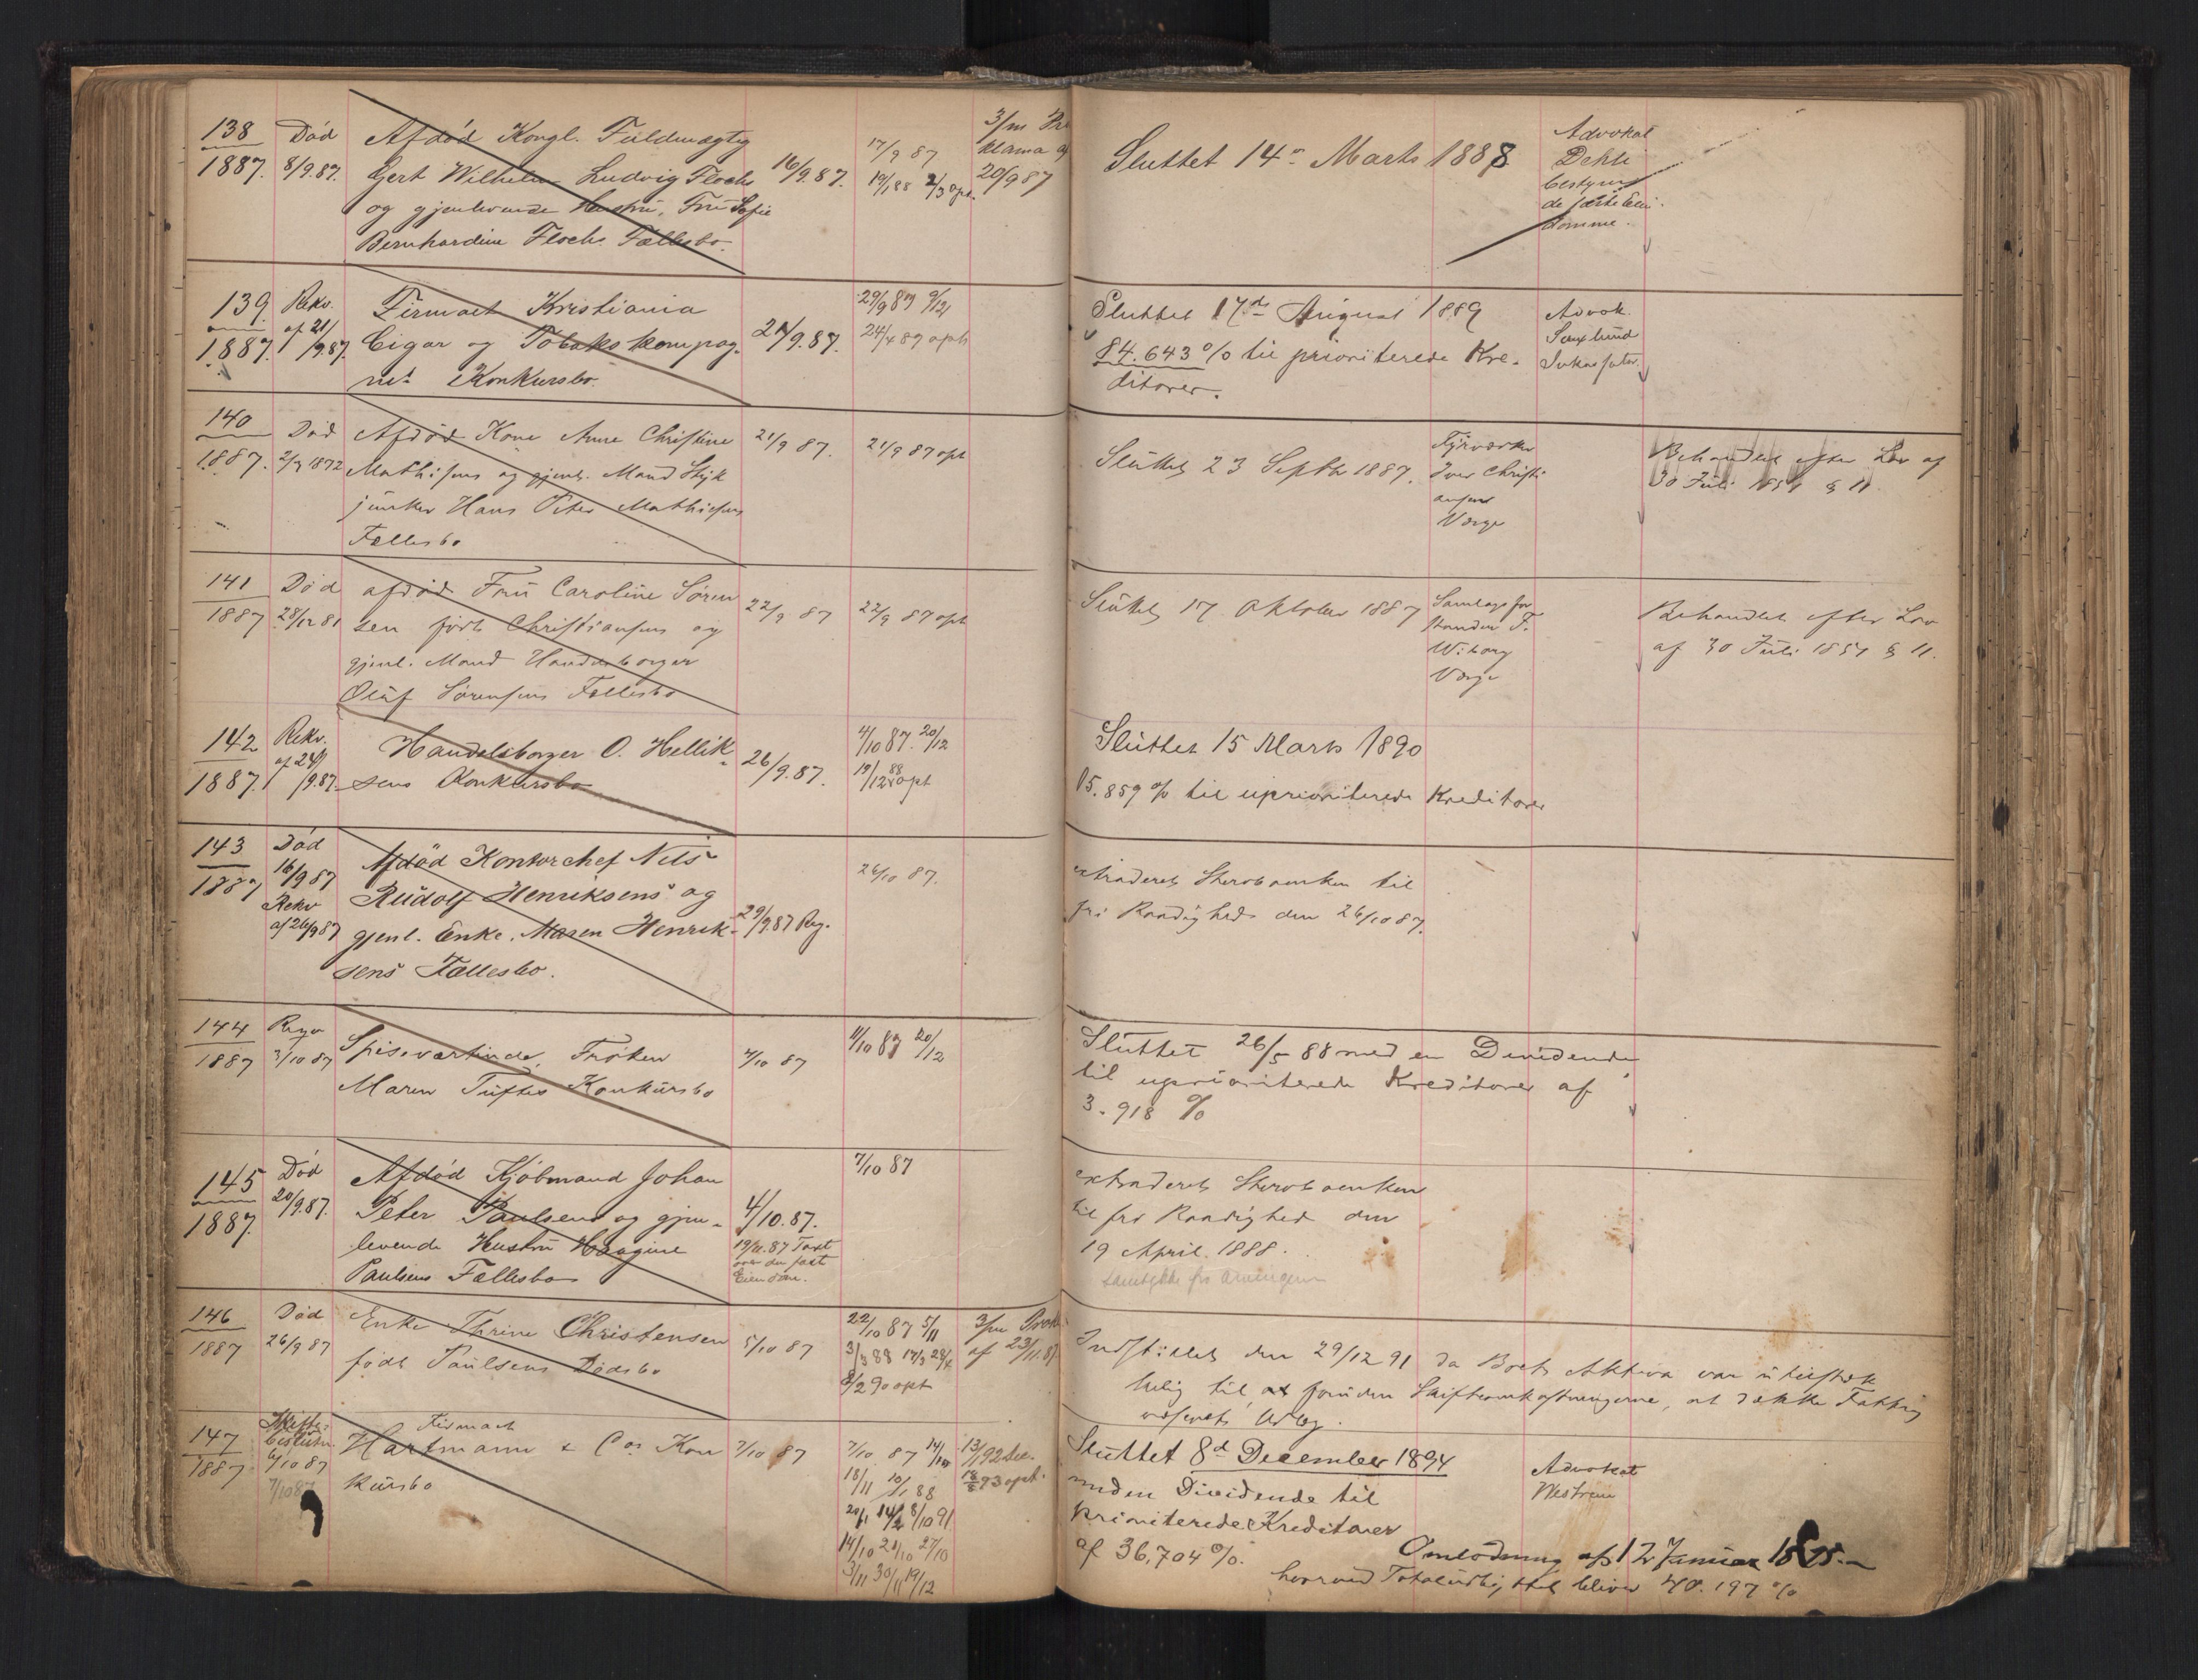 138
1887.
Død
8/9.87.
Afdød Kongl. Fuldmægtig
Gert Wilhelm Ludvig Flochs
og gjenlevende Hustru, Fru Sofie
Bernhardine Flochs Fællesbo.
16/9.87.
17/9 87
19/1 88 2/3 opt.
3/m Pro
klama af
20/9 87
Sluttet 14de Marts 1888
Advokat
Dehli
bestyrer
de faste Eien-
domme.
139.
1887.
Rekv.
af 21/
/9.87.
Firmaet Kristiania
Cigar og Tobakskompag-
nis Konkursbo.
21/9.87.
29/9 87 9/12
24/4 89 opt
Sluttet 17de August 1889
84.643 % til prioriterede Kre-
ditorer.
Advok.
Saxlund
Inkassator.
140
1887.
Død
2/7 1872
Afdød Kone Anne Christine
Mathisens og gjenl. Mand Styk
junker Hans Peter Mathisens
Fællesbo
21/9 87.
21/9 87 opt
Sluttet 23 Septbr 1887.
Fyrværker
Iver Christi
ansens
Værge
Behandlet efter Lov af
30 Juli 1851 § 11.
141
1887
Død
28/12 81
afdød Fru Caroline Søren
sen født Christiansens og
gjenl. Mand Handelsborger
Oluf Sørensens Fællesbo
22/9 87
22/9 87 opt
Sluttet 17 Oktober 1887
Samlagsfor
stander F.
Wiborg
Værge
Behandlet efter Lov
af 30 Juli 1851 § 11.
142
1887.
Rekv.
af 24/
/9.87.
Handelsborger O. Hellik-
sens Konkursbo
26/9.87.
4/10 87. 20/12
19/12 88 opt
Sluttet 15 Marts 1890
15.859 % til uprioriterede Kreditorer
143
1887
Død
16/9 87
Rekv
af 26/9 87
Afdød Kontorchef Nils
Rudolf Henriksens og
gjenl. Enke, Maren Henrik-
sens Fællesbo.
29/9.87 Reg.
26/10 87.
extraderet Stervboenken til
fri Raadighed den 26/10 87.
144
1887
3/10 87
Spiseværtinde, Frøken
Maren Tuftes Konkursbo
4/10 87
11/10 87 20/12
Sluttet 26/5 88 med en Dividende
til uprioriterede Kreditorer af
3.918 %
145
1887.
Død
20/9.87.
Afdød Kjøbmand Johan
Peter Paulsens og gjen-
levende Hustru Haagine
Paulsens Fællesbo
4/10.87.
19/11.87 Taxt
over den fast
Eiendom.
7/10 87
extraderet Stervboenken
til fri Raadighed den
19 April 1888.
samtykke fra Arvingerne
146
1887
Død
26/9 87
Enke Thrine Christensen
født Paulsens Dødsbo
5/10 87
22/10 87 5/11
3/3 88 14/3 28/4
8/2 90 opt
3/m Prok
af 23/11.87
Indstillet den 29/12 91 da Boets Aktiva var utilstræk
kelig til, at foruden Skifteomkostningerne, at dække Fattig
væsenets Udlæg.
147
1887
Skifte-
beslutn.
6/10 87
7/10 87
Firmaet
Hartmann & Co's Kon
kursbo
7/10 87
7/10 87 14/10
18/11 10/1 88
20/1 14/2 8/10 91
14/10 21/10 27/10
3/11 30/11 19/12
Sluttet 8d December 1894
uden Dividende til
prioriterede Kreditorer
af 36,704 %.
Advokat
Omlodning af 12 Januar 1895.
hvorved Totaludbyttet bliver 40.197 %